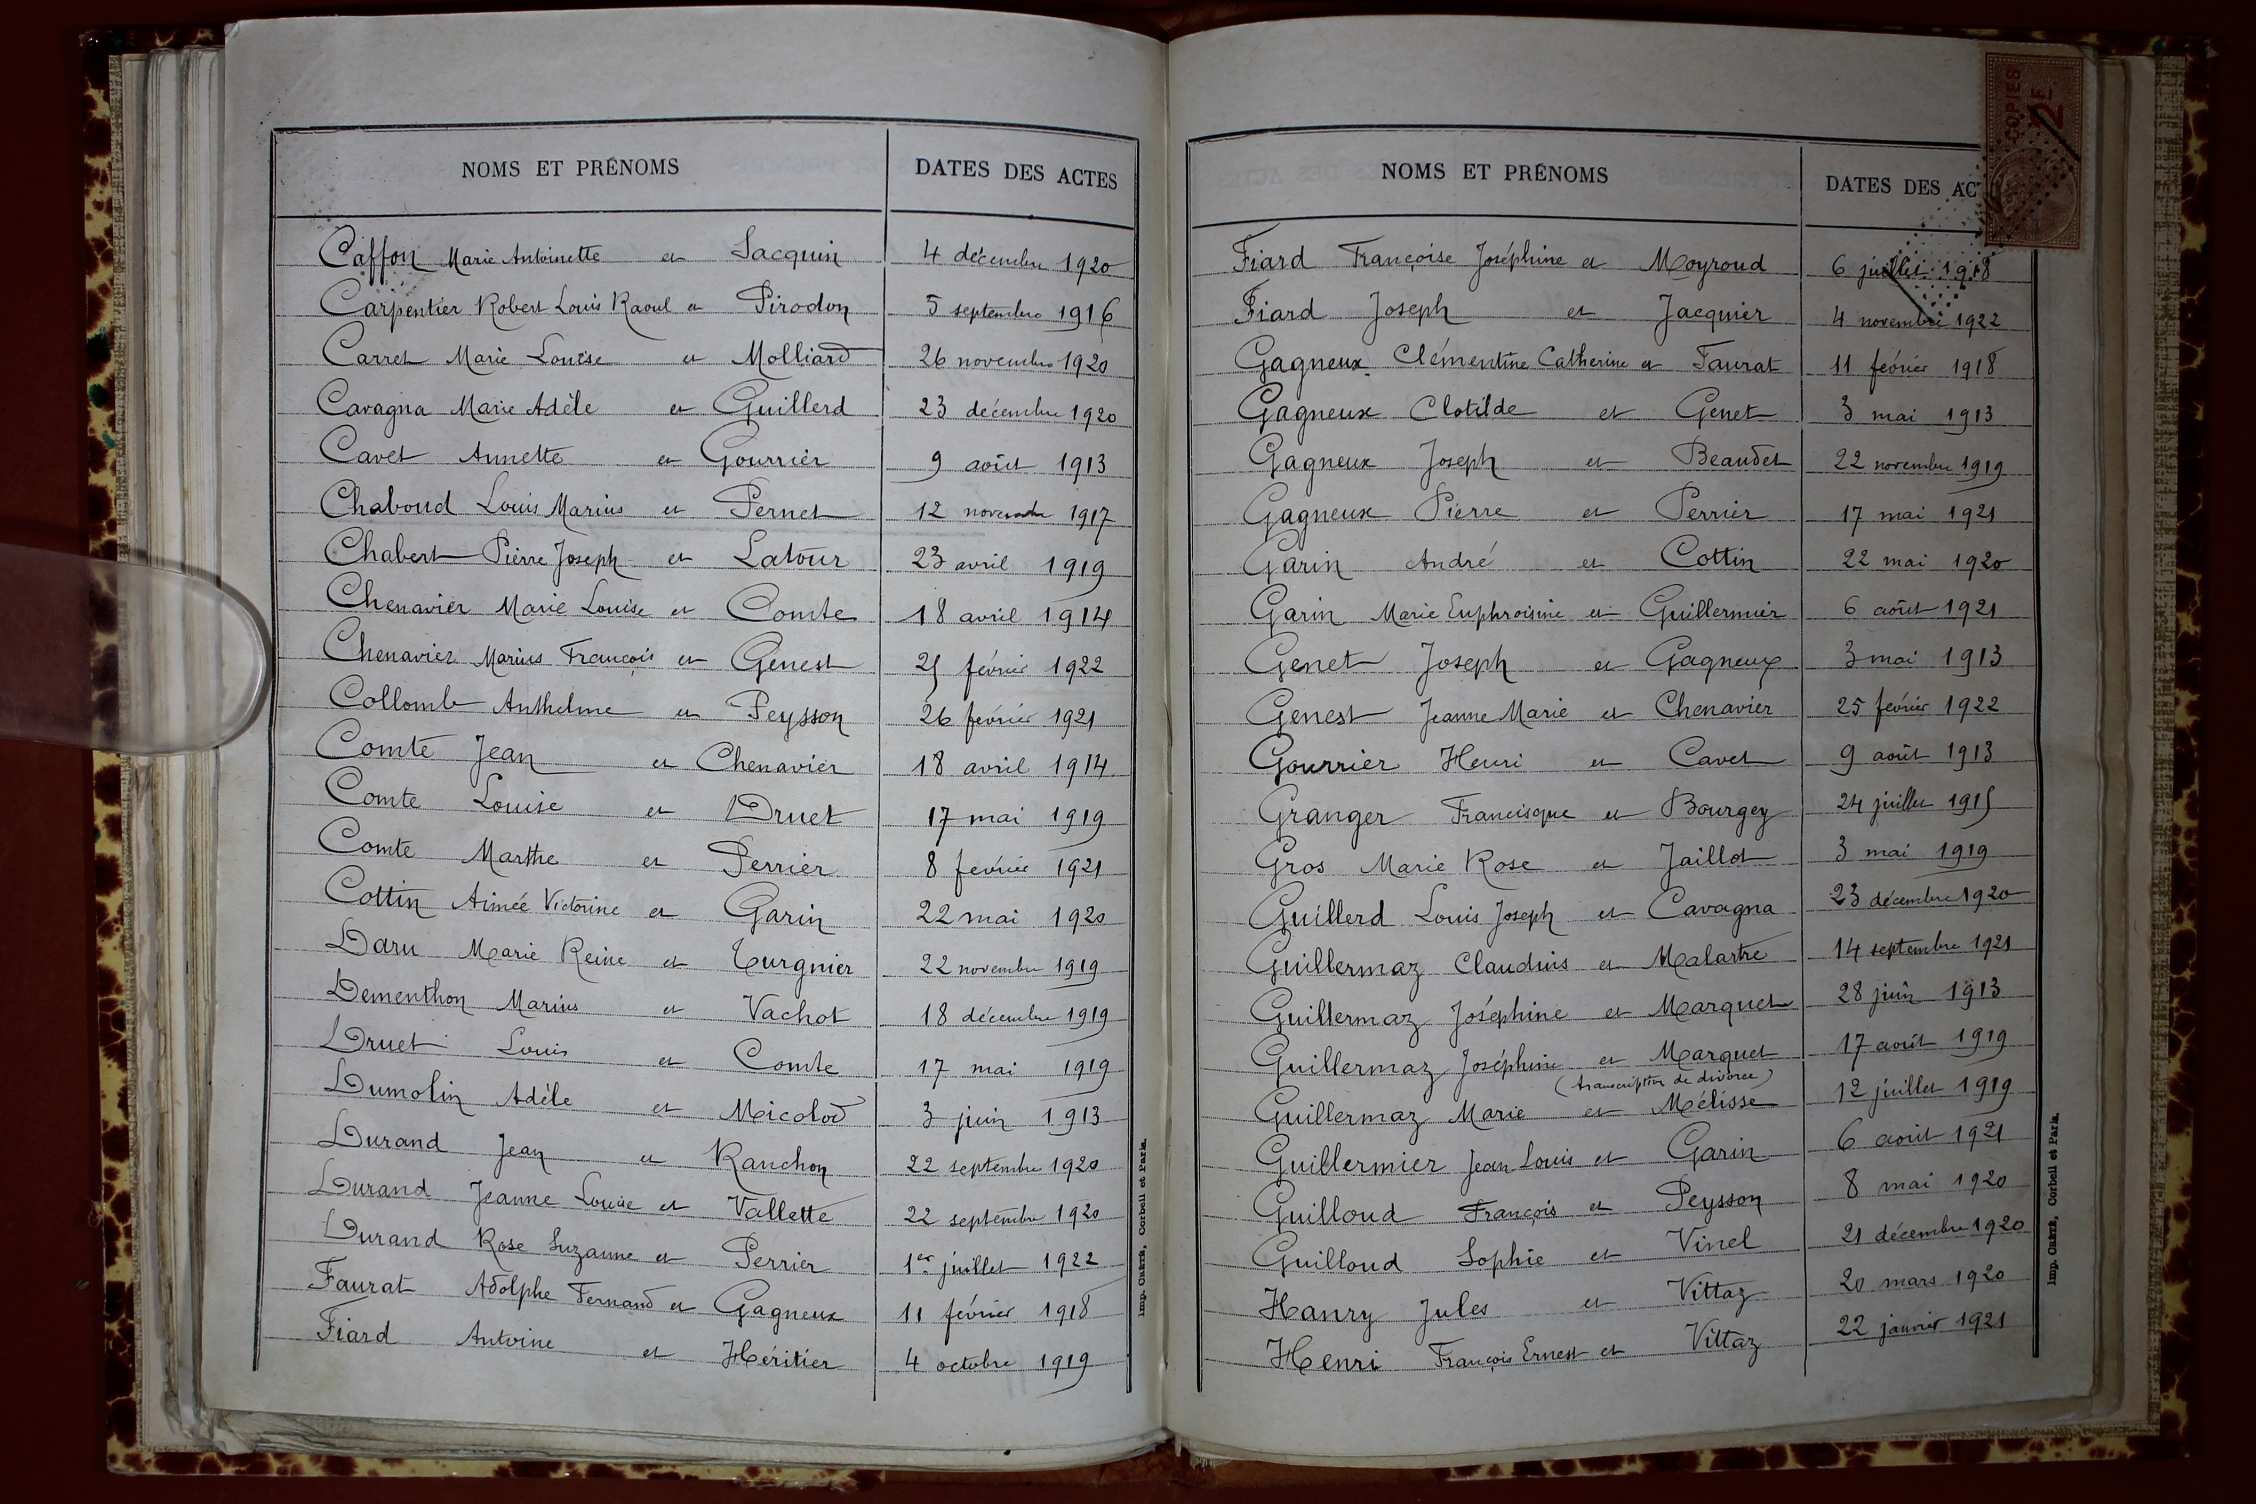 NOMS ET PRÉNOMS DATES DES ACTES
Caffon Marie Antoinette et Jacquin 4 décembre 1920
Carpentier Robert Louis Raoul et Pirodon 5 septembre 1916
Carret Marie Louise et Molliard 26 novembre 1920
Cavagna Marie Adèle et Guillerd 23 décembre 1920
Cavet Annette et Gourrier 9 août 1913
Chaboud Louis Marius et Pernet 12 novembre 1917
Chabert Pierre Joseph et Latour 23 avril 1919
Chenavier Marie Louise et Comte 18 avril 1914
Chenavier Marius François et Genest 25 février 1922
Collomb Anthelme et Peysson 26 février 1921
Comte Jean et Chenavier 18 avril 1914
Comte Louise et Druet 17 mai 1919
Comte Marthe et Perrier 8 février 1921
Cottin Aimée Victorine et Garin 22 mai 1920
Daru Marie Reine et Turgnier 22 novembre 1919
Dementhon Marius et Vachot 18 décembre 1919
Druet Louis et Comte 17 mai 1919
Dumolin Adèle et Micolod 3 juin 1913
Durand Jean et Ranchon 22 septembre 1920
Durand Jeanne Louise et Vallette 22 septembre 1920
Durand Rose Suzanne et Perrier 1er juillet 1922
Faurat Adolphe Fernand et Gagneux 11 février 1918
Fiard Antoine et Héritier 4 octobre 1919
Imp. CRÉTÉ, Corbeil et Paris.
NOMS ET PRÉNOMS DATES DES AC
COPIES
2 F
Fiard Françoise Joséphine et Moyroud 6 juillet 1918
Fiard Joseph et Jacquier 4 novembre 1922
Gagneux Clémentine Catherine et Faurat 11 février 1918
Gagneux Clotilde et Genet 3 mai 1913
Gagneux Joseph et Beaudet 22 novembre 1919
Gagneux Pierre et Perrier 17 mai 1921
Garin André et Cottin 22 mai 1920
Garin Marie Euphroisine et Guillermier 6 août 1921
Genet Joseph et Gagneux 3 mai 1913
Genest Jeanne Marie et Chenavier 25 février 1922
Gourrier Henri et Cavet 9 août 1913
Granger Francisque et Bourgey 24 juillet 1915
Gros Marie Rose et Jaillot 3 mai 1919
Guillerd Louis Joseph et Cavagna 23 décembre 1920
Guillermaz Claudius et Malartre 14 septembre 1921
Guillermaz Joséphine et Marquet 28 juin 1913
Guillermaz Joséphine et Marquet 17 août 1919
(transcription de divorce)
Guillermaz Marie et Mélisse 12 juillet 1919
Guillermier Jean Louis et Garin 6 août 1921
Guilloud François et Peysson 8 mai 1920
Guilloud Sophie et Vinel 21 décembre 1920
Hanry Jules et Vittaz 20 mars 1920
Henri François Ernest et Vittaz 22 janvier 1921
Imp. CRÉTÉ, Corbeil et Paris.